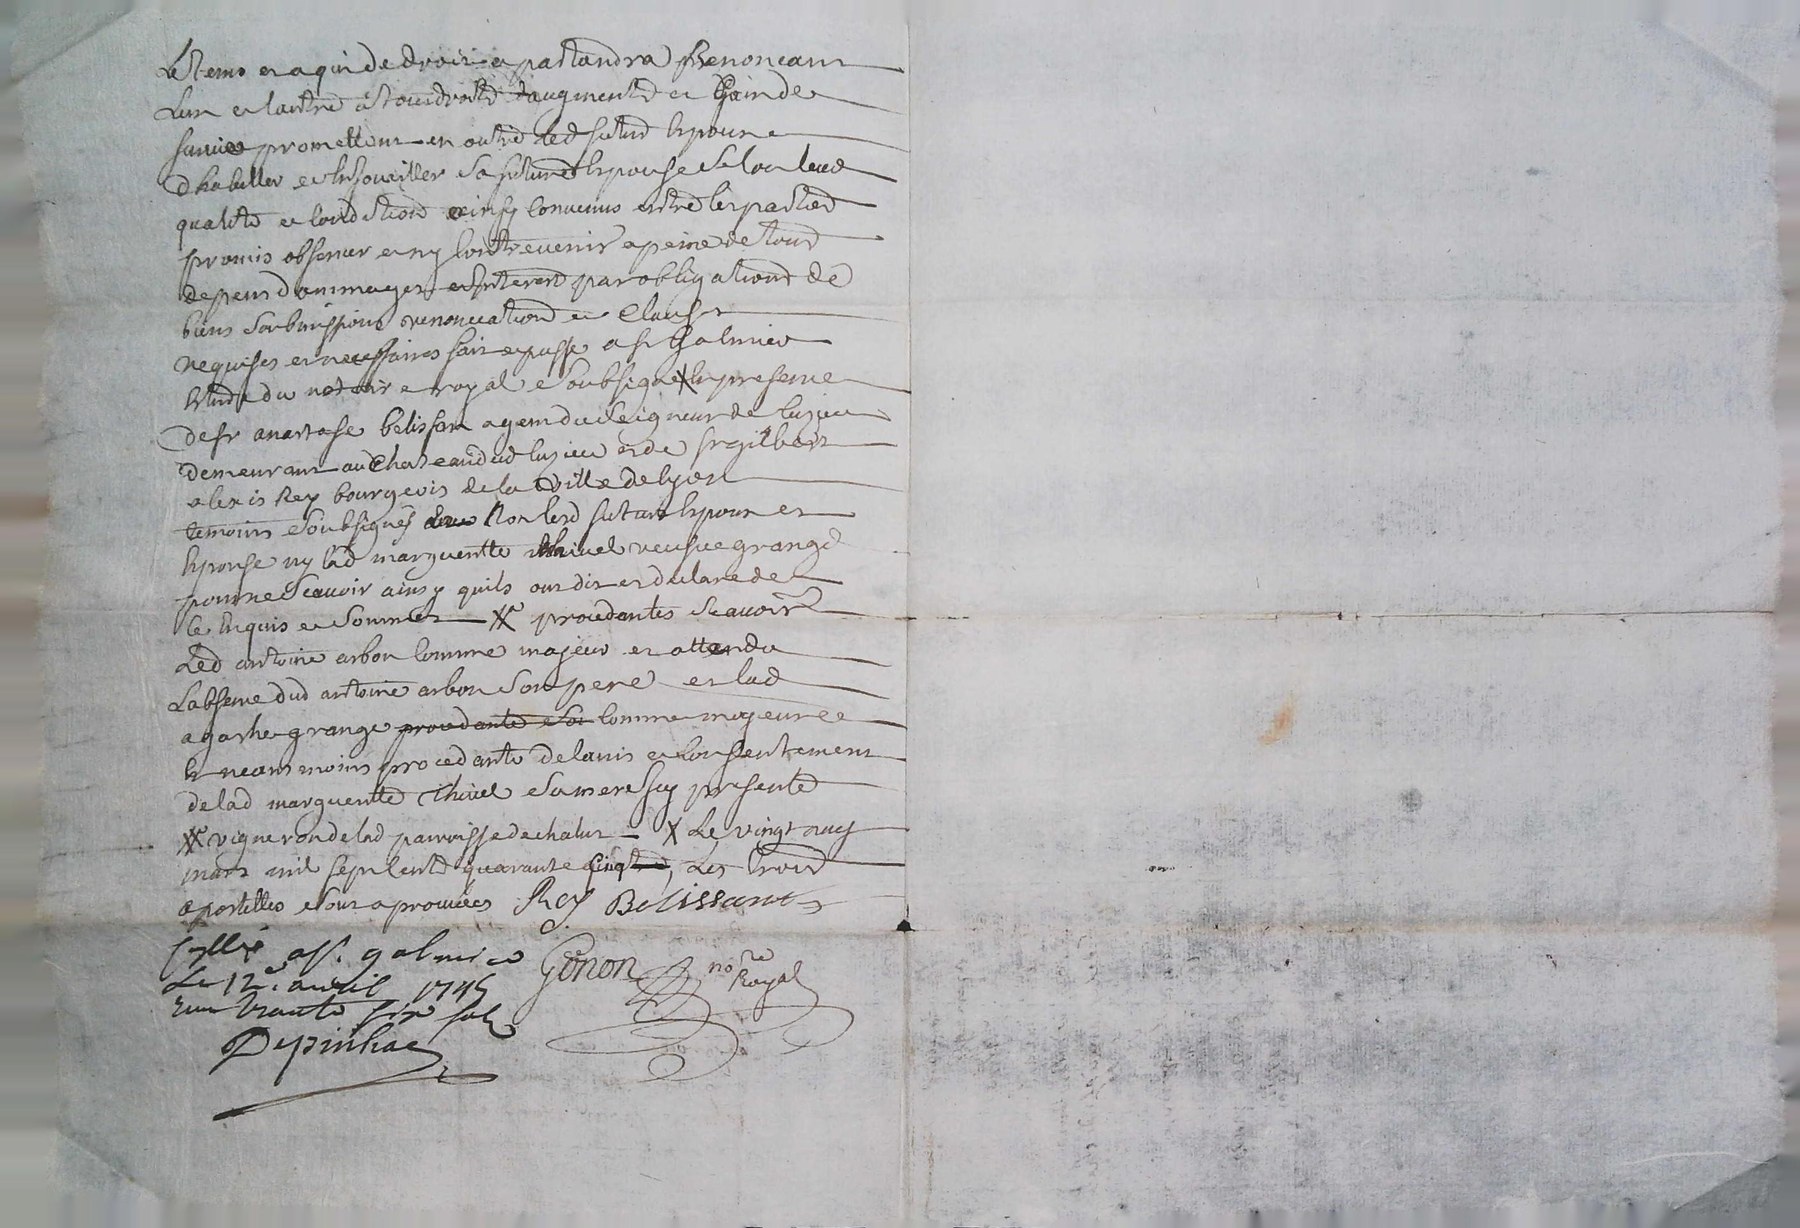 Le tems et a qui de droit apartandra Renoncant
Lun et lautre a tous droits daugmente et Gain de
survie promettant en outre led futur Epoux
dhabiller et Enjouailler sa future Epouse selon leur
qualité et condition ainsy convenus entre les parties
promis observer et ny contrevenir a peine de tous
depens dommages et interest par obligations de
biens soubmissions renonciations et clauses
requises et necessaires fait et passé a st Galmier
Etude du notaire royal soubsigné X En presence
de sr anastase belissan agent du seigneur de
demeurant au Chateau dud et de sr gilbert
alexis Rey bourgeois de la ville de lyon
temoins soubsignés Non lesd futurs Epoux et
Epouse ny lad margueritte thivel veufve grange
pour ne scavoir ainsy quils ont dit et declaré de
ce Enquis et sommés XX procedantes scavoir
Led antoine arbon comme majeur et attendu
Labsence dud antoine arbon son pere et lad
agathe grange procedante comme majeure
Et neanmoins procedante de lavis et consentement
de lad margueritte thivel sa mere icy presente
XX vigneron de lad parroisse de chalus X Le vingt
mars mil sept cents quarante cinq, Les trois
apostilles sont aprouvées Rey Belissant
a st. galmier Gonon no re Royal
Le 12e. avril 1745
trante six sols
Depinhac